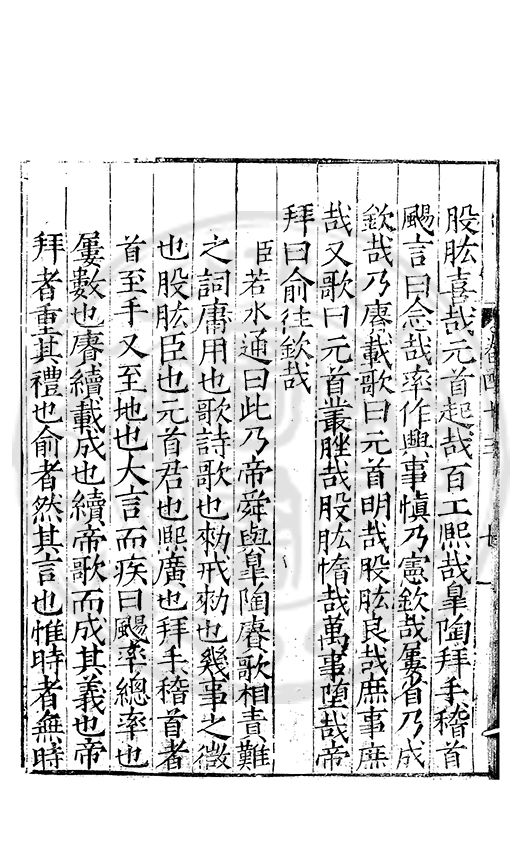 股肱喜哉元首起哉百工熙哉臯陶拜手稽首
颺言曰念哉率作興事慎乃憲欽哉屢省乃成
欽哉乃賡載歌曰元首明哉股肱良哉庶事康
哉又歌曰元首叢脞哉股肱惰哉萬事墮哉帝
拜曰俞往欽哉
臣若水通曰此乃帝舜與臯陶賡歌相責難
之詞庸用也歌詩歌也勑戒勑也幾事之微
也股肱臣也元首君也熙廣也拜手稽首者
首至手又至地也大言而疾曰颺率總率也
屢數也賡續載成也續帝歌而成其義也帝
拜者重其禮也俞者然其言也惟時者無時